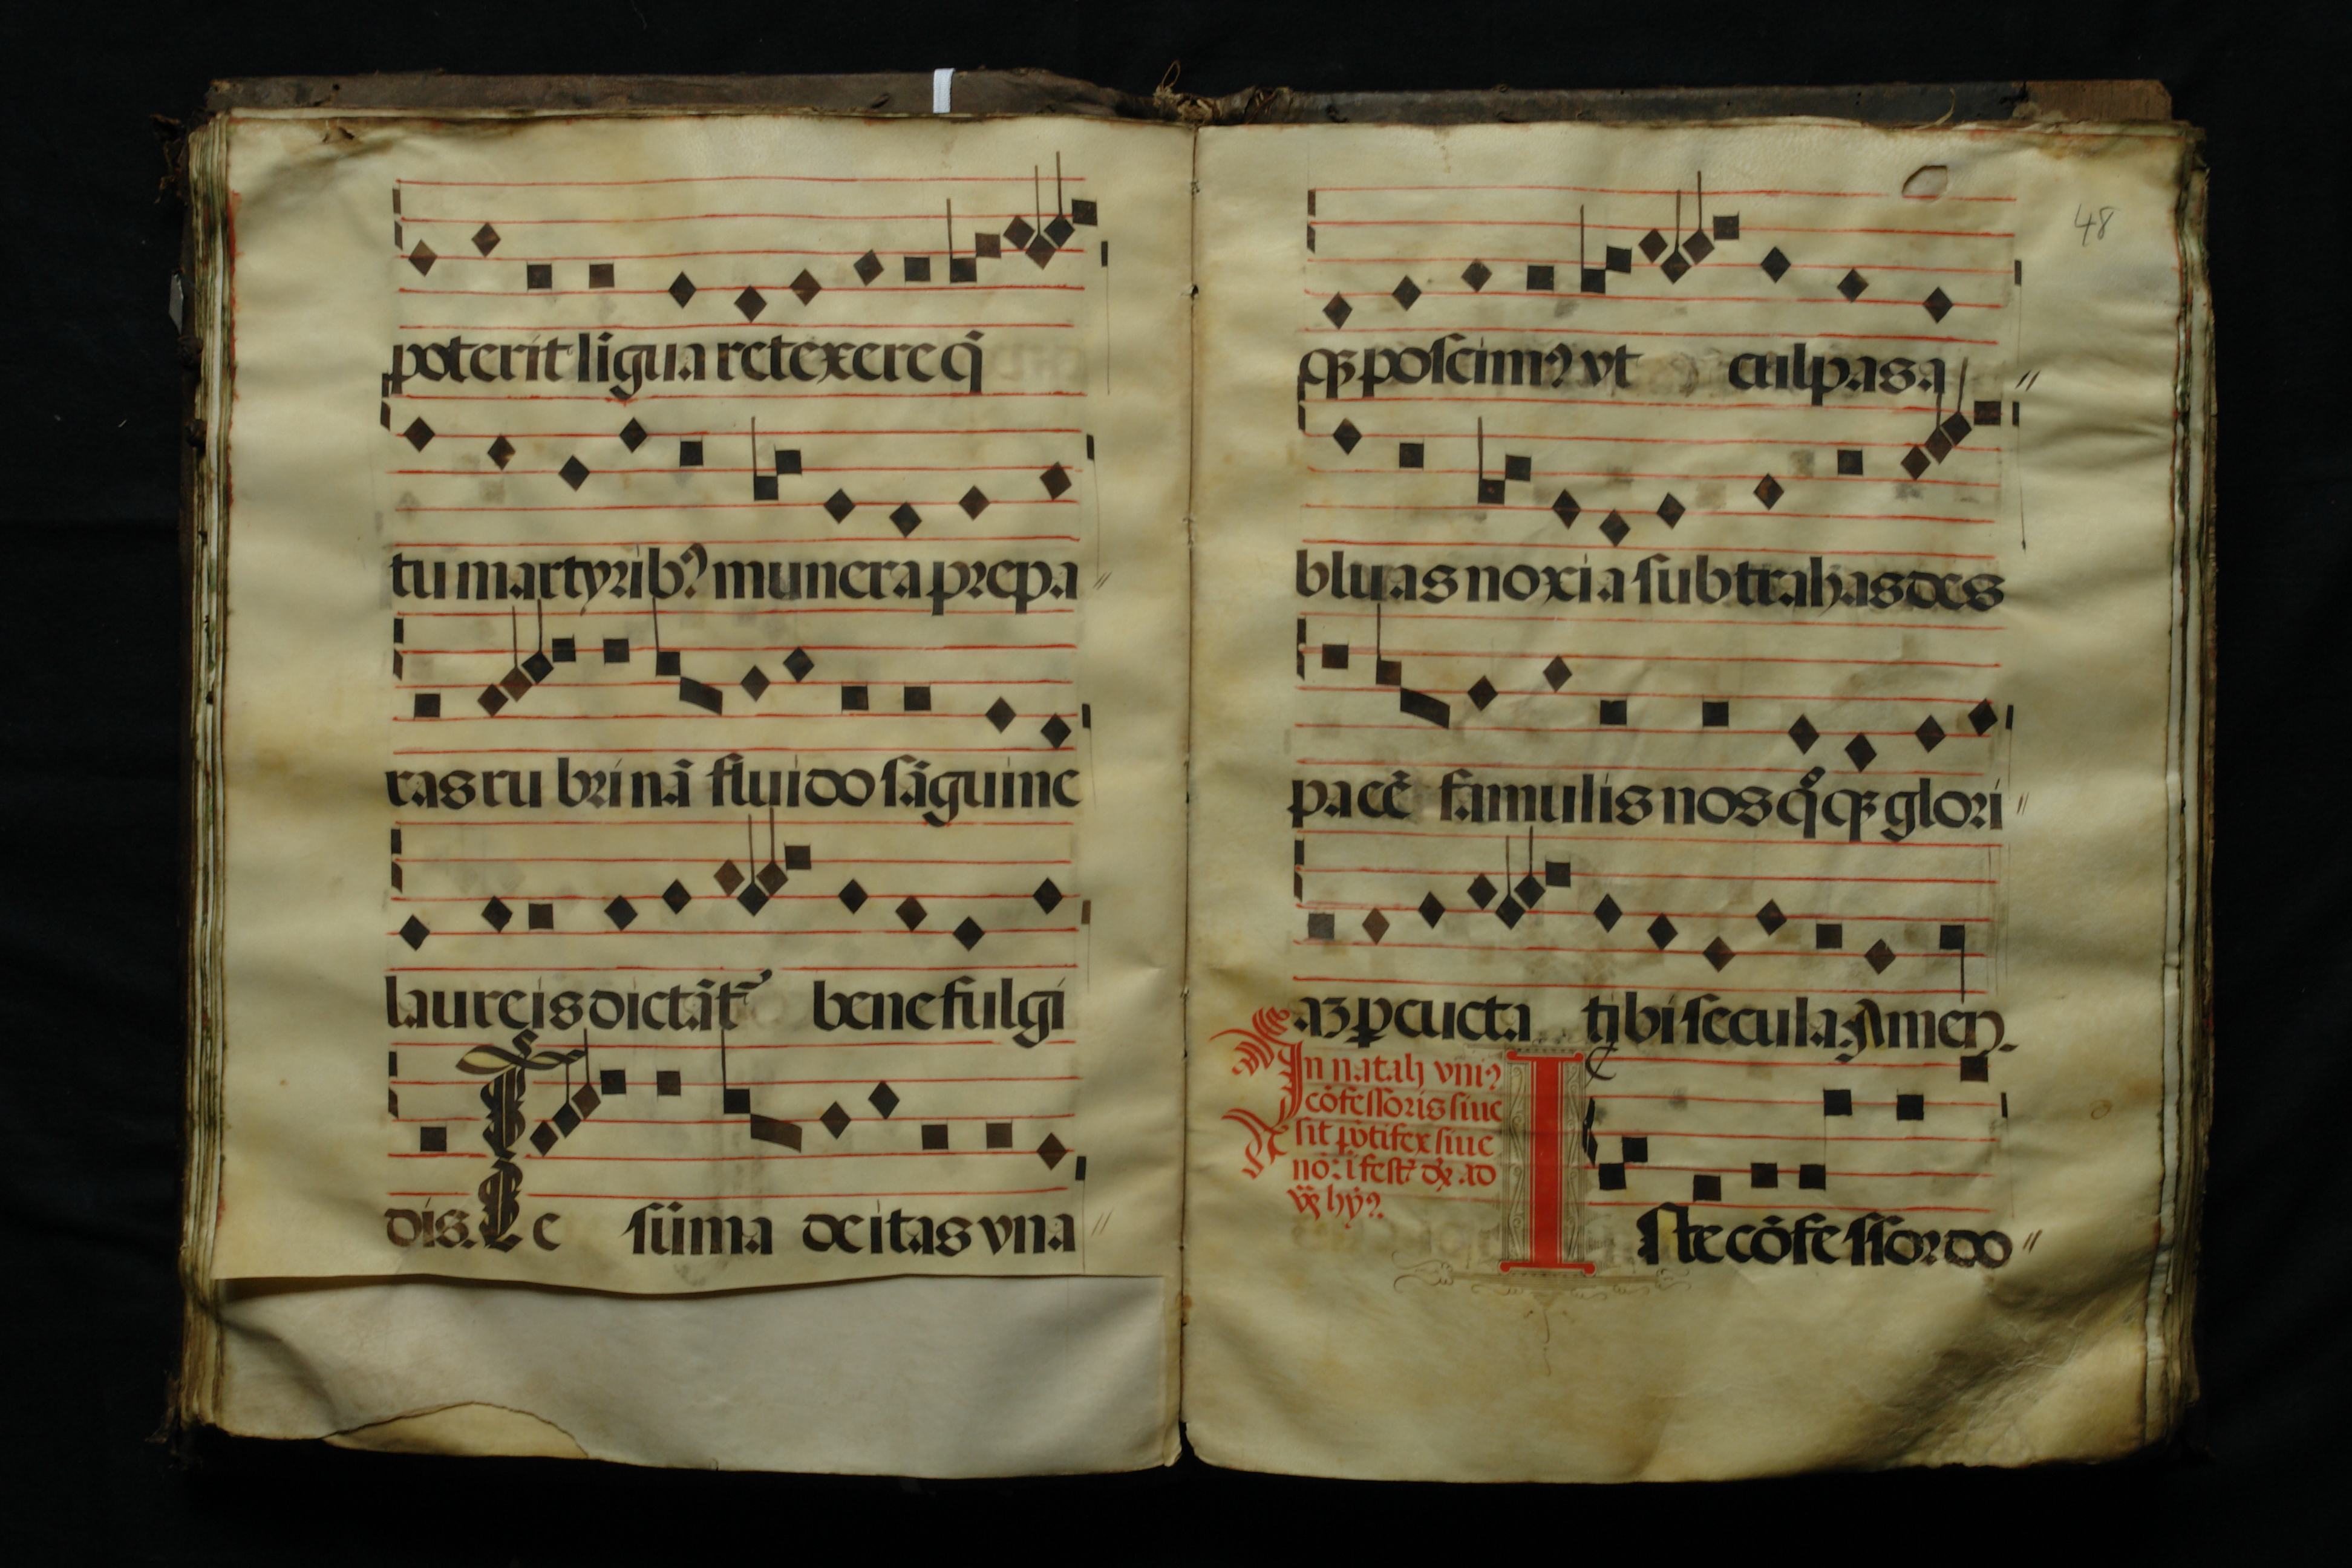 poterit ligua retexere q̃
tu martyrib? munera prepa〃
ras ru brí nã fluido sãguine
laureis dictãt᷑ bene fulgi
dís. Te sũma deitas vna〃
48
qȝ poscim? vt culpas a〃
bluas noxia subtrahas des
pacẽ famulis nos q̊qȝ glori〃
aʒ ꝑ cũcta tibi secula. Amen.
In natali vni?
cõfessoris siue
sit põtifex siue
Iste cõfessor do〃